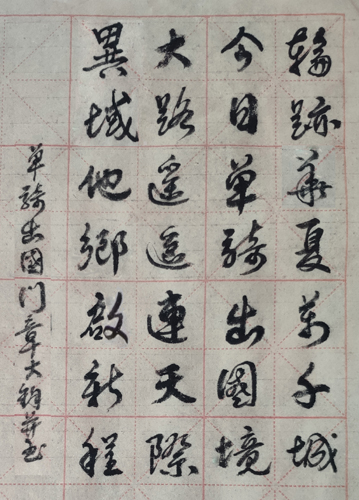 輪跡華夏萬千城
今日單騎出國境
大路遥遥連天際
異域他鄉啟新程
單騎出國門章大鈞并书